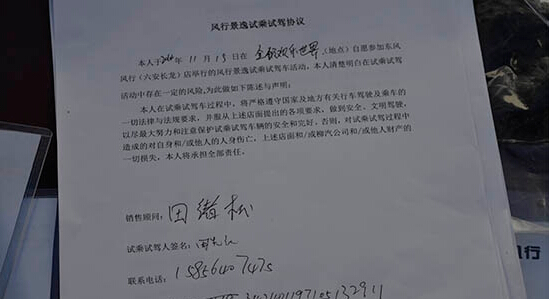 风行景逸试乘试驾协议
本人于 年 11 月 15 日在 全能欢乐世界 (地点) 自愿参加东风
风行（六安长龙）店举行的风行景逸试乘试驾车活动，本人清楚明白在试乘试驾
活动中存在一定的风险,为此做如下陈述与声明：
本人在试乘试驾车过程中，将严格遵守国家及地方有关行车驾驶及乘车的
一切法律与法规要求，并服从上述店面提出的各项要求，做到安全、文明驾驶，
以尽最大努力和注意保护试乘试驾车辆的安全和完好。否则，对试乘试驾过程中
造成的对自身和/或他人的人身伤亡，上述店面和/或柳汽公司和/或他人财产的
一切损失，本人将承担全部责任。
销售顾问: 田绪松
试乘试驾人签名:
联系电话: 15856407475
行